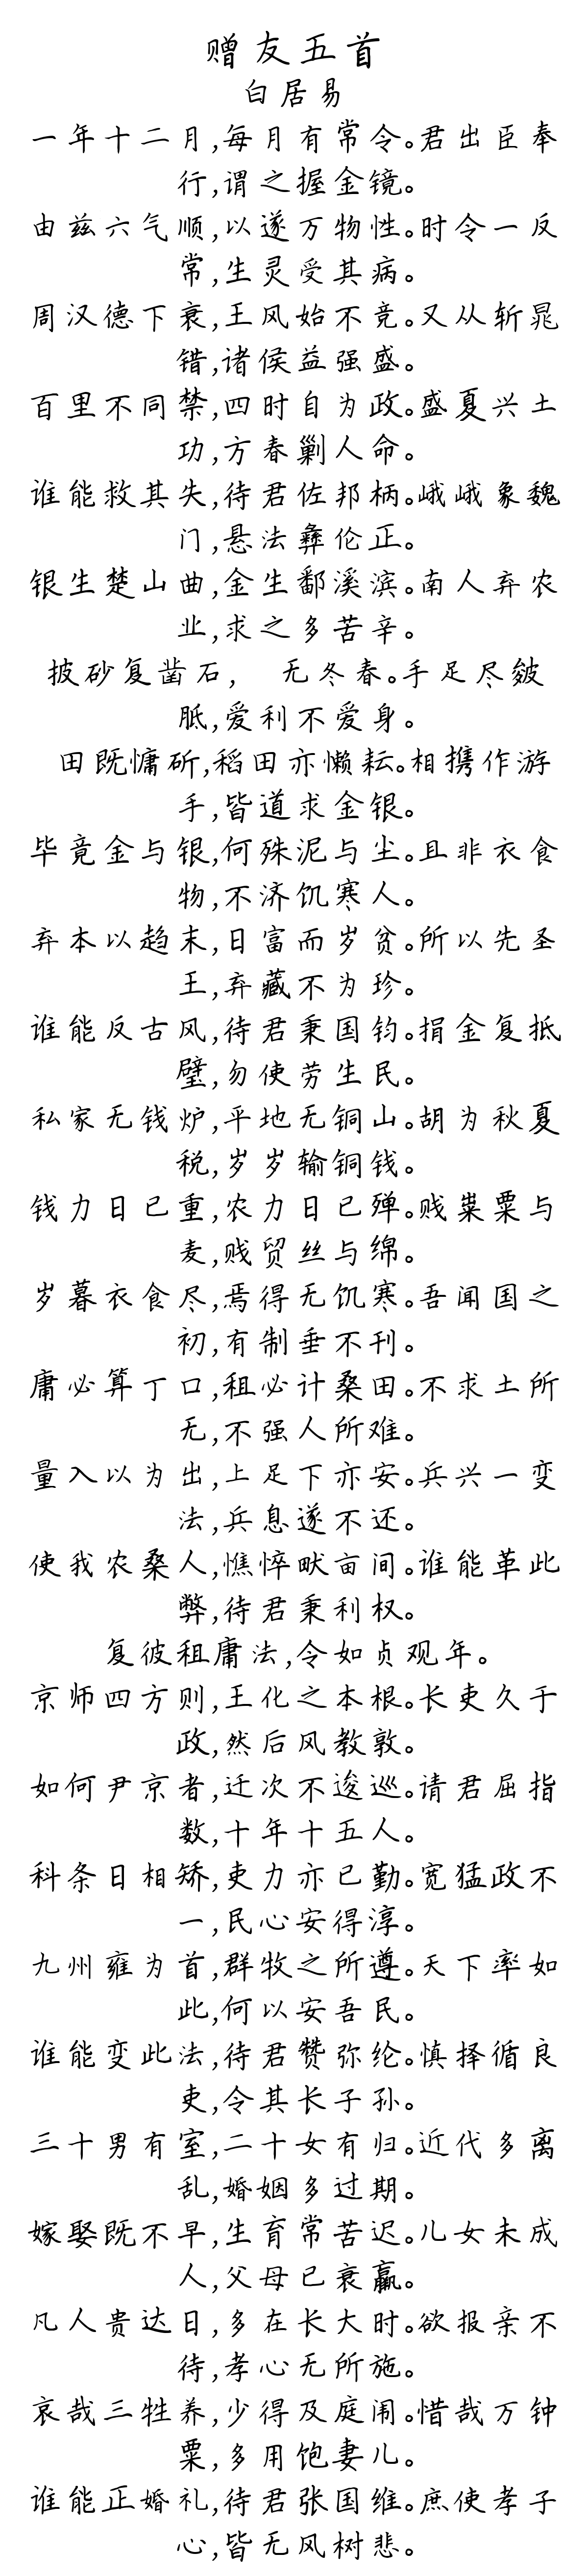 赠友五首
白居易
一年十二月,每月有常令。君出臣奉
行,谓之握金镜。
由兹六气顺,以遂万物性。时令一反
常,生灵受其病。
周汉德下衰,王风始不竞。又从斩晁
错,诸侯益强盛。
百里不同禁,四时自为政。盛夏兴土
功,方春剿人命。
谁能救其失,待君佐邦柄。峨峨象魏
门,悬法彝伦正。
银生楚山曲,金生鄱溪滨。南人弃农
业,求之多苦辛。
披砂复凿石, 无冬春。手足尽皴
胝,爱利不爱身。
田既慵斫,稻田亦懒耘。相携作游
手,皆道求金银。
毕竟金与银,何殊泥与尘。且非衣食
物,不济饥寒人。
弃本以趋末,日富而岁贫。所以先圣
王,弃藏不为珍。
谁能反古风,待君秉国钧。捐金复抵
璧,勿使劳生民。
私家无钱炉,平地无铜山。胡为秋夏
税,岁岁输铜钱。
钱力日已重,农力日已殚。贱粜粟与
麦,贱贸丝与绵。
岁暮衣食尽,焉得无饥寒。吾闻国之
初,有制垂不刊。
庸必算丁口,租必计桑田。不求土所
无,不强人所难。
量入以为出,上足下亦安。兵兴一变
法,兵息遂不还。
使我农桑人,憔悴畎亩间。谁能革此
弊,待君秉利权。
复彼租庸法,令如贞观年。
京师四方则,王化之本根。长吏久于
政,然后风教敦。
如何尹京者,迁次不逡巡。请君屈指
数,十年十五人。
科条日相矫,吏力亦已勤。宽猛政不
一,民心安得淳。
九州雍为首,群牧之所遵。天下率如
此,何以安吾民。
谁能变此法,待君赞弥纶。慎择循良
吏,令其长子孙。
三十男有室,二十女有归。近代多离
乱,婚姻多过期。
嫁娶既不早,生育常苦迟。儿女未成
人,父母已衰羸。
凡人贵达日,多在长大时。欲报亲不
待,孝心无所施。
哀哉三牲养,少得及庭闱。惜哉万钟
粟,多用饱妻儿。
谁能正婚礼,待君张国维。庶使孝子
心,皆无风树悲。